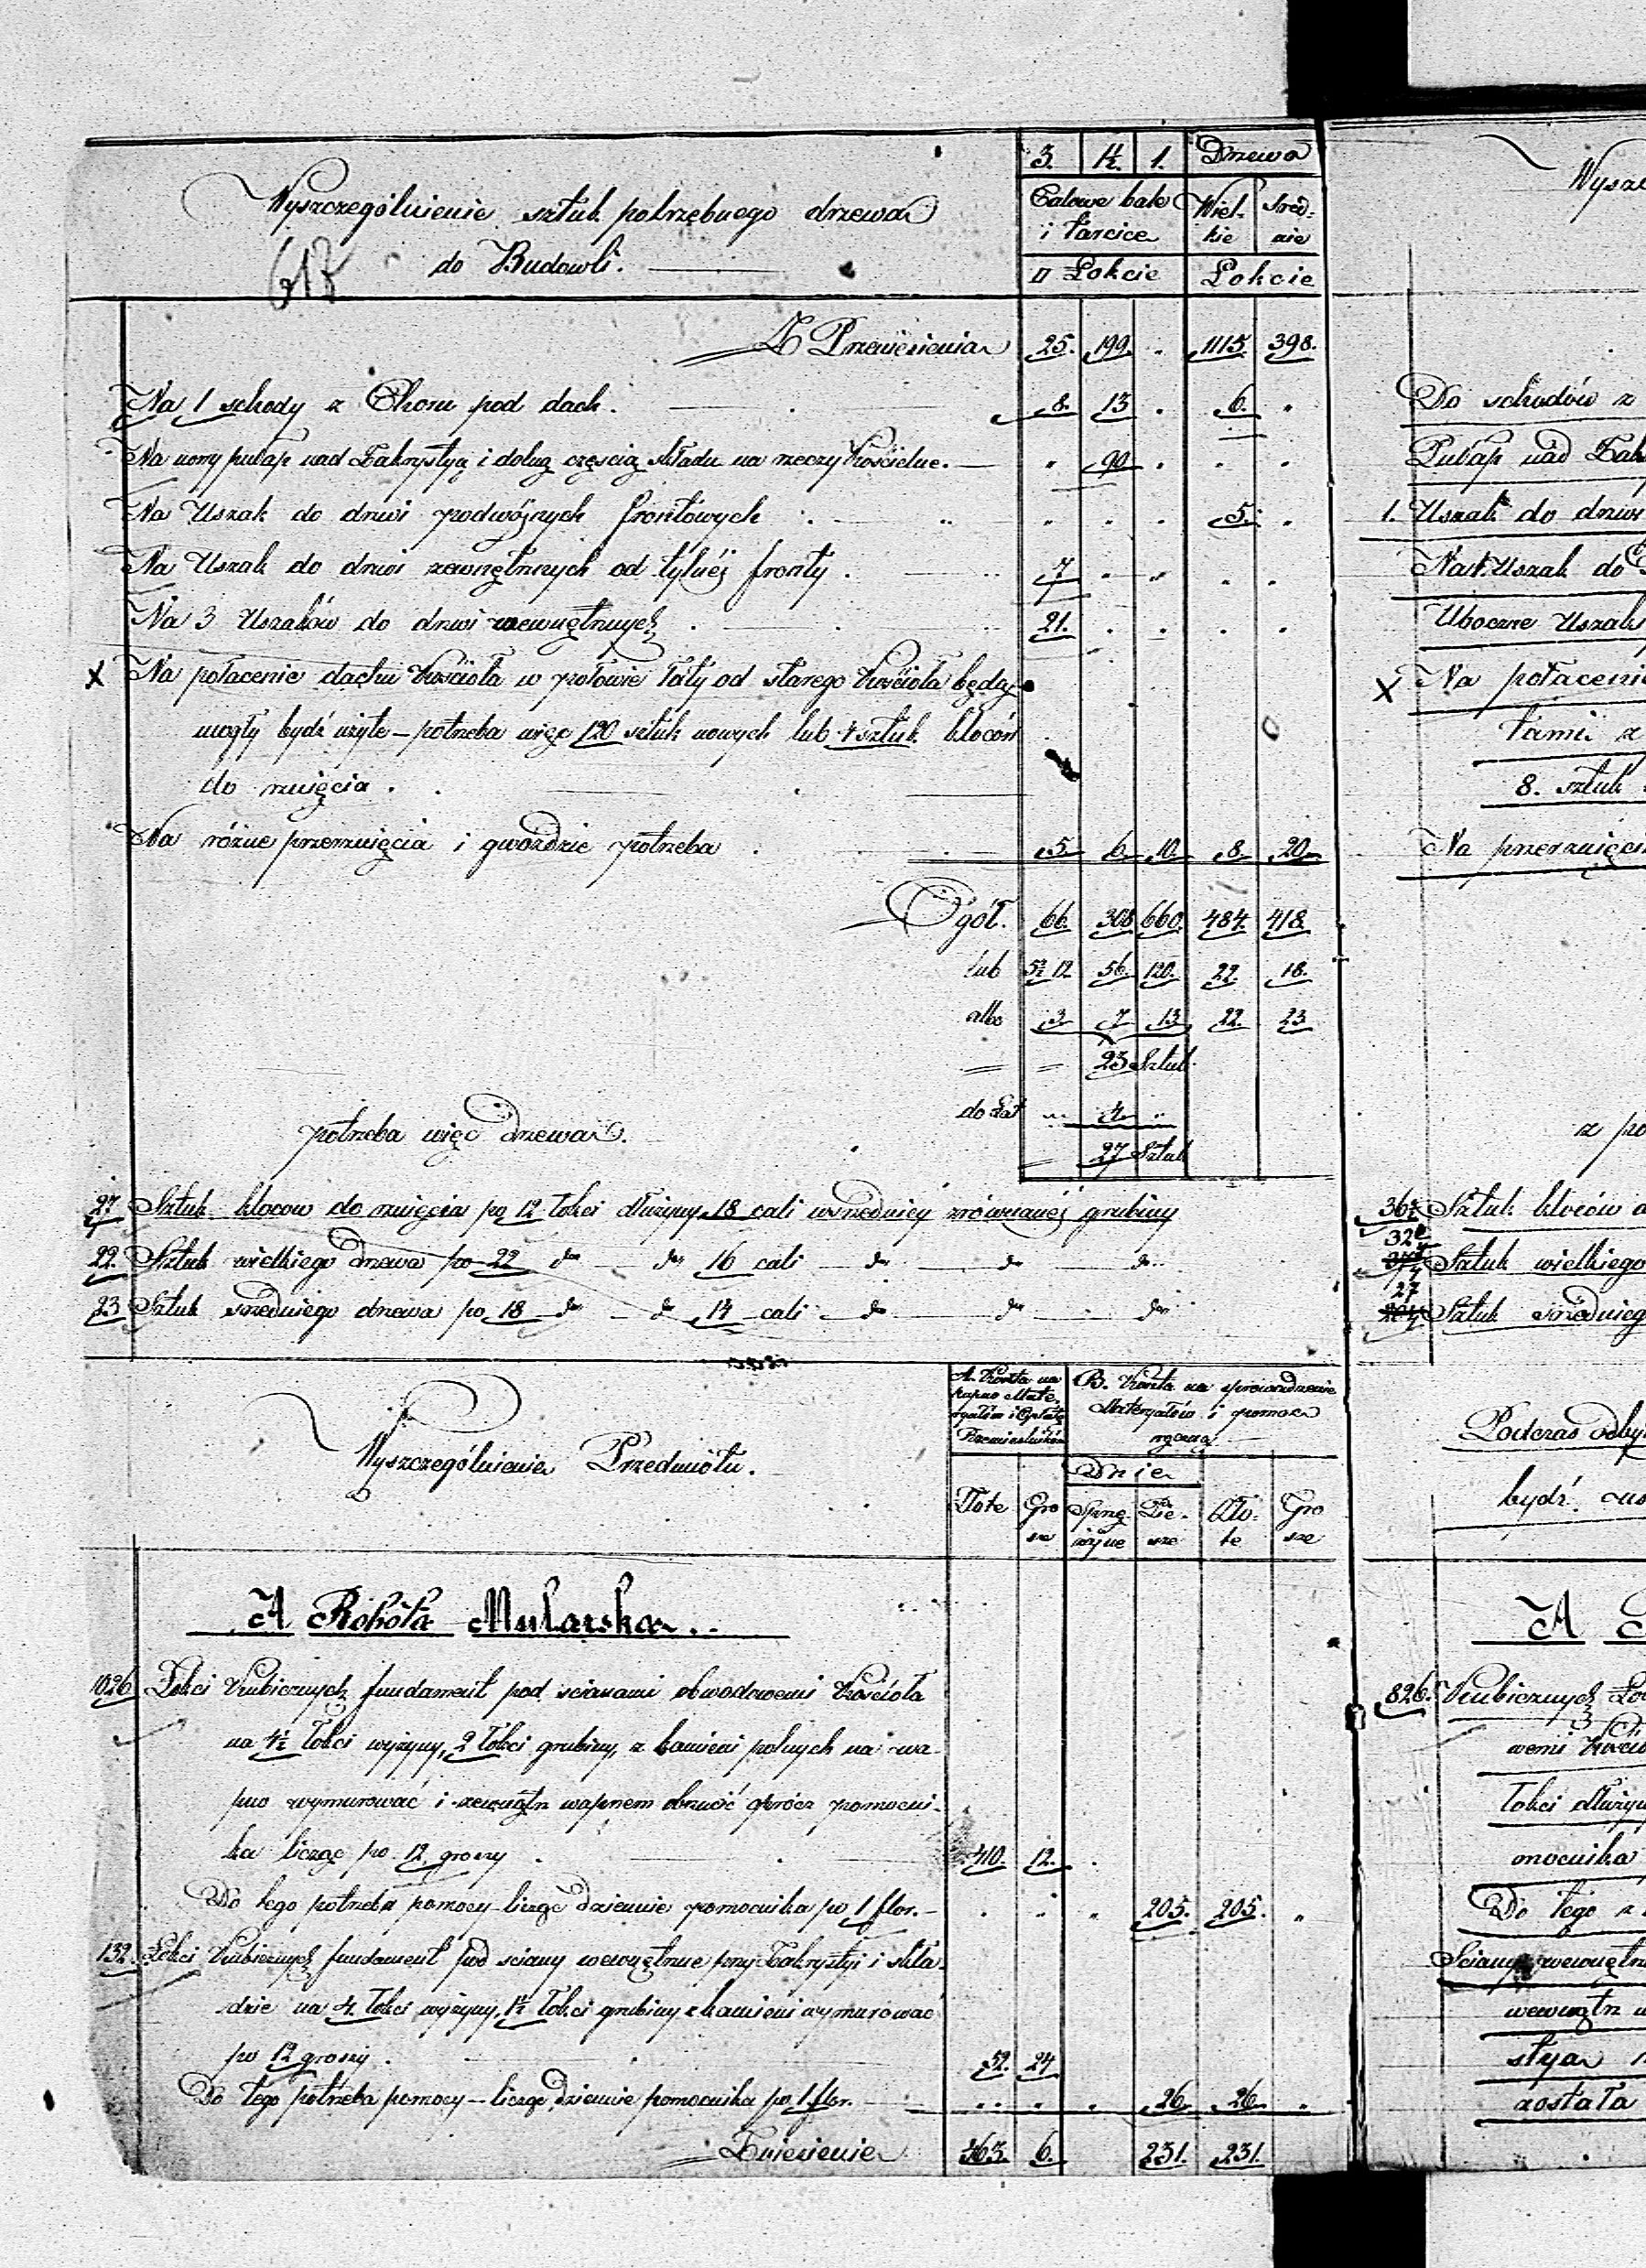 3. 1½. 1. Drzewo
Wyszczególnienie sztuk potrzebnego drzewa
do Budowli.
618
Calowe bale i tarcice
Wielkie
Średnie
□ Łokcie
Łokcie
Z Przeniesienia 25. 199 . 1115. 398.
Na 1 schody z Choru pod dach. 8. 13 . 6. "
Na nowy pułap nad Zakrystyą i dolną częścią składu na rzeczy kościelne. " 90 . . .
Na Uszak do drzwi podwójnych frontowych " " " 5. "
Na Uszak do drzwi zewnętrznych od tylnéj fronty. 7 " " . .
Na 3 Uszaków do drzwi wewnętrznych. 21. . . . .
X Na połacenie dachu kościoła w połowie łaty od starego kościoła będą
mogły bydź użyte – potrzeba więc 120 sztuk nowych lub 4 sztuk kloców
do rznięcia.
Na różne przerznięcia i gwoździe potrzeba 5 6 10. 8 20
Ogół. 66. 308 660. 484. 418.
lub 5½ 12 56 120. 22. 18.
albo 3 7 13 22. 23
23 Sztuk
do Łat 4
27 Sztuk
potrzeba więc drzewa.
27 Sztuk klocow do rznięcia po 12 łokci dłużyny 18 cali w średnicy zrównanéj grubiny
22. Sztuk wielkiego drzewa po 22 do do 16 cali do do do
23 Sztuk średniego drzewa po 18 do do 14 cali do do do
Wyszczególnienie Przedmiotu.
A. Kwota na
kupno Mate-
ryałów i Opłatę
Rzemieślników
B. Kwota na sprowadzenie
Materyałów i pomoc
ręczną
Dnie
Złote
Grosze
Sprzężajne
Piesze
Złote
Grosze
A Robota Mularska.
1026 Łokci kubicznych fundament pod ścianami obwodowemi kościoła
na 4½ łokci wyżyny, 2 łokci grubiny, z kamieni polnych na wa-
pno wymurować i zewnątrz wapnem obrzucić oprócz pomocni-
ka licząc po 12 groszy. 410. 12.
Do tego potrzeba pomocy licząc dziennie pomocnika po 1 flor. – . " " 205. 205. "
132. Łokci kubicznych fundament pod ściany wewnętrzne przy Zakrystyi i skła-
dzie na 4 łokci wyżyny, 1½ łokci grubiny z kamieni wymurować
po 12 groszy. 52. 24
Do tego potrzeba pomocy – licząc dziennie pomocnika po 1 flor. " " " 26. 26. "
Zniesienie 463. 6. 231. 231.
Do schodów z
Pułap nad Zak
1. Uszak do drzwi
Na 1. Uszak do
Uboczne Uszak
X Na połaceni
łami z
8. sztuk
Na przerznięci
z po
Sztuk kloców
Sztuk wielkiego
27
Sztuk średnieg
Podczas odby
bydź
A
826. Kubicznych Ło
wemi kości
łokci dłużyn
mocnika
Do tego z
Sciany wewnętrz
wewnątrz
styą
została